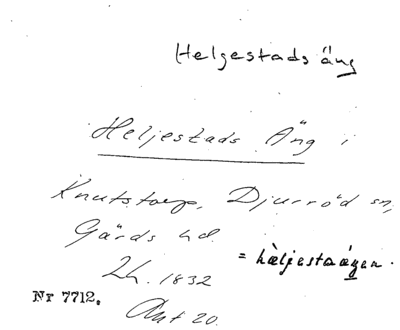 Helgestads äng
Heljestads Äng i
Knutstorp, Djurröd sn,
Gärds hd.
Lh. 1832
= hèljestaángen.
Nr 7712.
Akt 20.